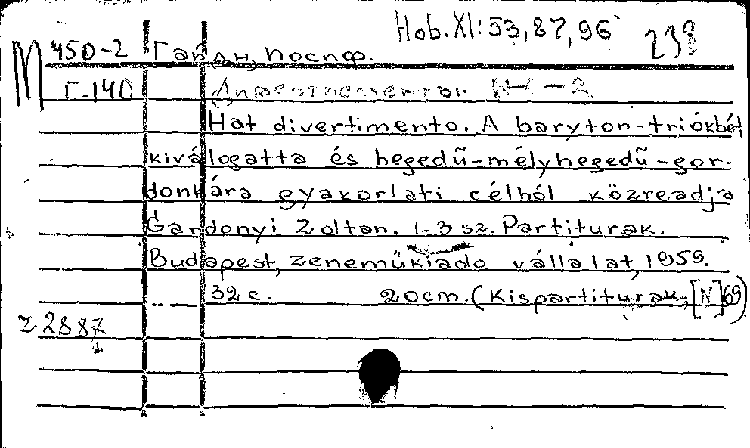 Hob. XI: 53, 87, 96 238
M 450-2 Гайдн, Йосиф.
Г-140 Дивертисменти. №1-2
Hat divertimento. A baryton-triókból
kiválogatta és hegedű-mélyhegedű-gor-
donkára gyakorlati célból közreadja
Gardonyi Zoltan. 1-3 sz. Partiturak.
Budapest, zeneműkiado vállalat, 1959.
32 с. 20cm. (Kispartiturak, [N] 69)
z 2887